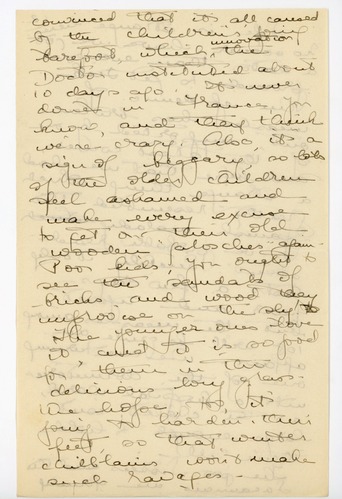 convinced that it's all caused
by the children's going
barefoot which innovation the
Doctor instituted about
10 days ago. It's never
done in France, you
know, and they think
we're crazy. Also, it's a
sign of beggary, so lots
of the older children
feel ashamed and
make every excuse
to get on their old
wooden galoches again.
Poor kids, you ought to
see the sandals of
bricks and wood they
improvise on the sly!
The younger ones love
it and it is so good
for them in the
delicious long grass.
We hope it's
going to harden their
feet, so that winter
chilblains won't make
such ravages -